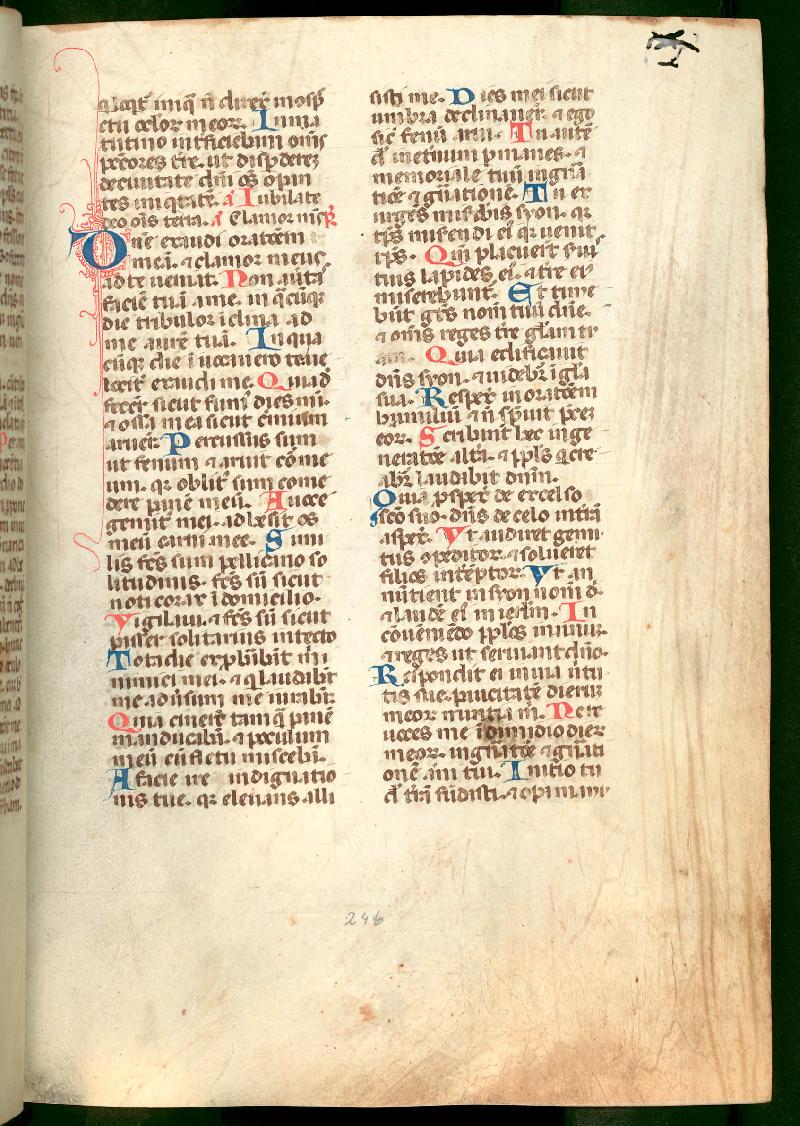 loqt̄ iniq̄ n̄ direx̄ in cōsp̄
ctu oclor meoꝝ. In ma
tutino int̄ficiebam om̄s
pctores tr̄e. ut disp̄derē
de ciuitate dn̄i om̄s opan
tes iniqtatē. a Iubilate
deo om̄s terra. a Clamor m̄s ps̄
Dn̄e exaudi oratōem
meā. ⁊ clamor meus
ad te ueniat. Non au̇tas
faciē tuā a me. in q̄cūq̄
die tribulor īclina ad
me aurē tuā. In qua
cūq̄ die ī uocauero te ue
locit̄ exaudi me. Quia d
fecer̄ sicut fum̄ dies mī.
⁊ ossa mea sicut cm̄ium
aruer̄. Percussus sum
ut fenum ⁊ aruit cō me
um. qr oblit̄ sum come
dere panē meū. A uoce
gemit̄ mei. adhesit os
meū carni mee. Simi
lis fc̄s sum pellicano so
litudinis. fc̄s sū sicut
noticorax ī domicilio.
Vigilaui. ⁊ fc̄s sū sicut
passer solitarius in tecto
Tota die exp̄babāt m̄
inimici mei. ⁊ q̄ laudabāt
me adūsum me iurabāt
Quia cinerē tamq̄ panē
manducabā. ⁊ poculum
meū cū fletu miscebā.
A facie ire indignatio
nis tue. qr eleuans alli
sisti me. Dies mei sicut
umbra declinauer̄. ⁊ ego
sic̄ fenū arui. Tu autē
dn̄e in et̄num p̄manes. ⁊
memoriale tuū in gn̄a
tōe ⁊ gn̄ationē. Tu ex
urges mis̄ebis syon. qr
tp̄s miserendi ei qr uenit
tp̄s. Qm̄ placuer̄t ser̄
tuis lapides ei. ⁊ tr̄e ei
miserebunt. Et time
būt gēs nom̄ tuū dn̄e.
⁊ om̄s reges tr̄e glām tu
am. Quia edificauit
dn̄s syon. ⁊ uidebit̄ ī gl̄a
sua. Respex̄ in oratōem
humiliū ⁊ n̄ sp̄uit p̄ces
eoꝝ. Scribant̄ hec in ge
neratōe alt̄a. ⁊ ppl̄s q̄ cre
abit̄ laudabit dn̄m.
Quia p̄spex̄ de excelso
sc̄o suo. dn̄s de celo in tr̄ā
aspex̄. Vt audiret gemi
tus ⁊peditoꝝ. ⁊ solueret
filios int̄eptoꝝ. Vt an
nūtient in syon nom̄ d̄.
⁊ laudē ei in ierlm̄. In
cōueniēdo ppl̄os in unū.
⁊ reges ut seruiant dn̄o.
Respondit ei in uia ūtu
tis sue. paucitatē dierū
meoꝝ nuntia m̄. Ne re
uoces me ī dimidio dierū
meoꝝ. in gn̄atōe ⁊ gn̄ati
onē anni tui. Initio tu
dn̄e tr̄ā fūdasti. ⁊ opa manu
246